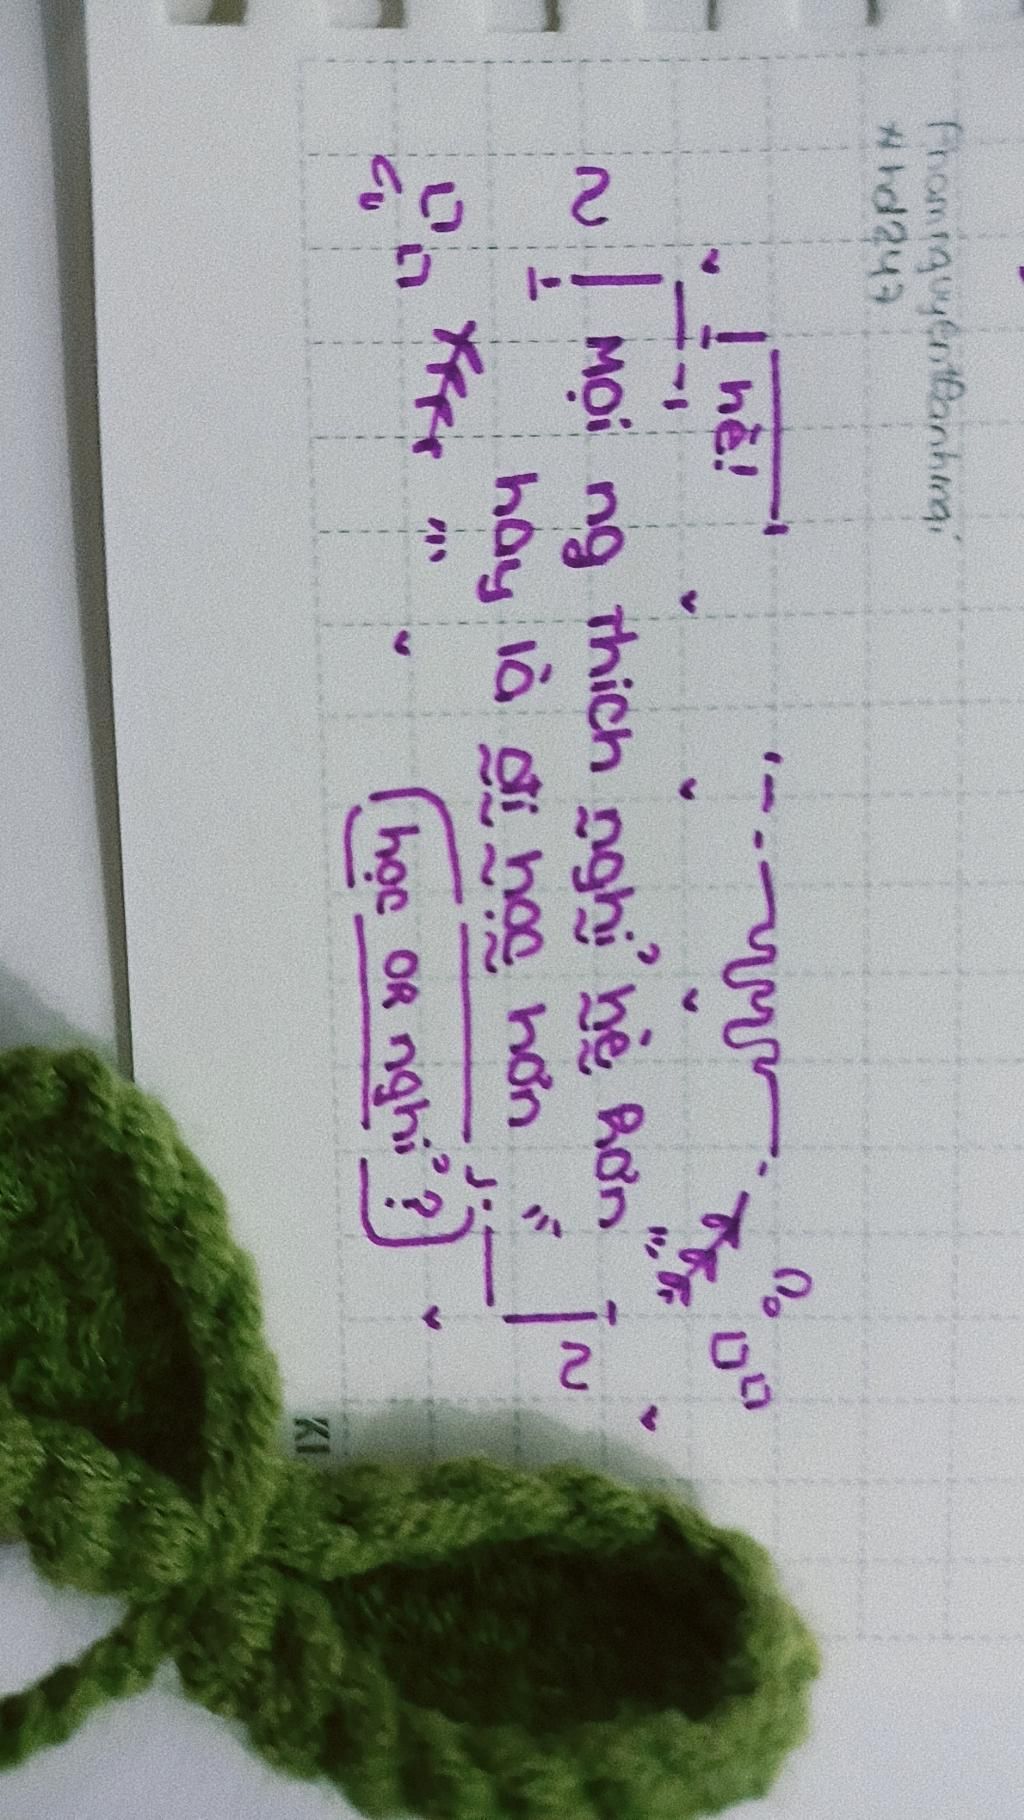 Phamnguyenthanhmai
#hd247
hè!
Mọi ng thích nghỉ hè hơn
hay là đi học hơn
học OR nghỉ?